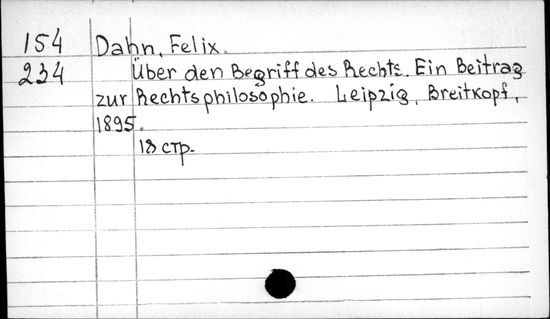 154 Dahn, Felix.
234 Über den Begriff des Rechts. Ein Beitrag
zur Rechtsphilosophie. Leipzig, Breitkopf,
1895.
18 стр.